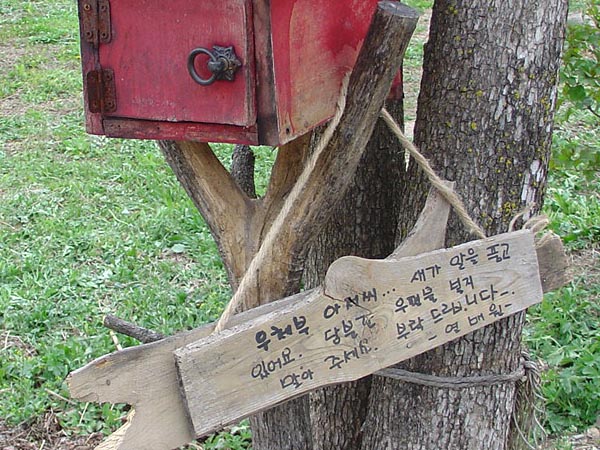 우체부 아저씨... 새가 알을 품고
있어요. 당분간 우편물 넣지
말아 주세요. 부탁드립니다...